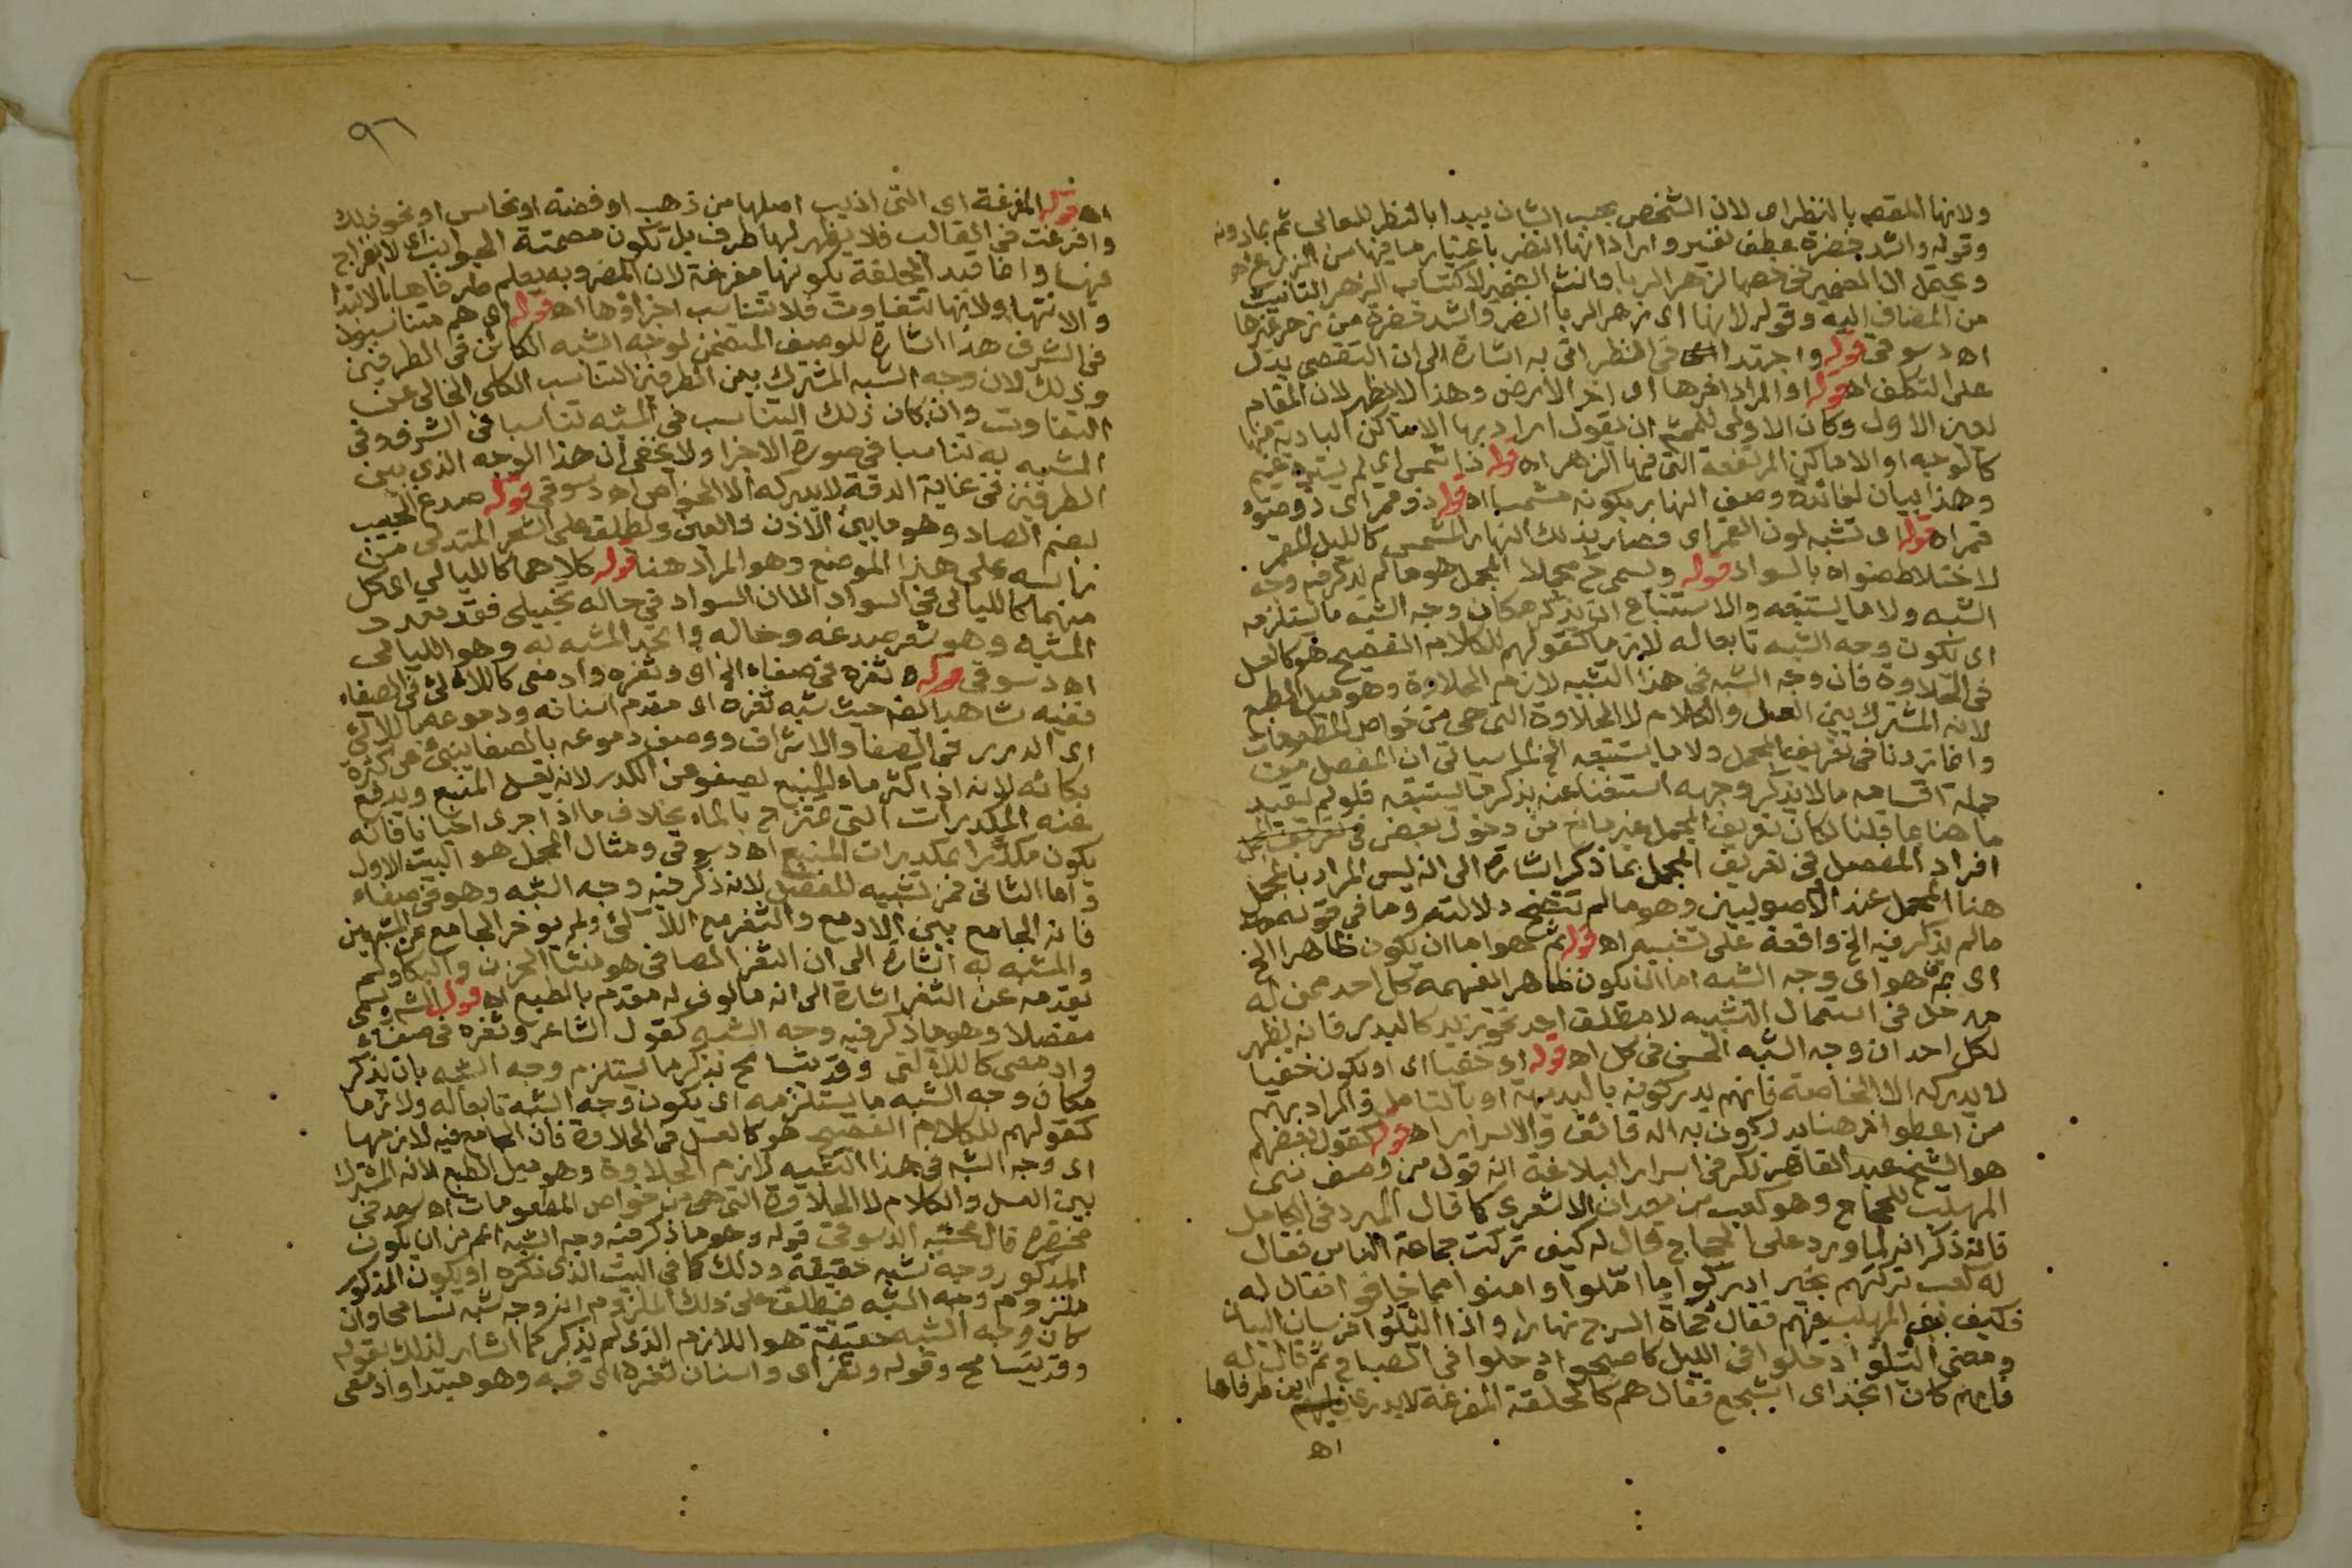 ولانها المقصد بالنظر اى لان الشخص بحسب الشان يبدا بالنظر للعالى ثم بما دونه
وقوله واشد خضرة عطف تفسير و اراد انها انضر باعتبار ما فيها من الزهر
ويحتمل ان الضمير فى خصها لزهر الربا وانث الضمير لاكتساب الزهر التانيث
من المضاف اليه وقوله لانها اى زهر الربا انضر واشد خضرة من زهر غيرها
اه دسوقى قوله واجتهدا فى النظر اتى به اشارة الى ان التقصى يدل
على التكلف اه قوله او المراد اخرها اى اخر الارض وهذا لا يظهر لان المقام
يعين الاول وكان الاولى للمحشى ان يقول اراد بها الاماكن البادية منها
كالوجه او الاماكن المرتفعة التى فيها الزهر اه قوله ذا شمس اى لم يستره غيم
وهذا بيان لفائدة وصف النهار بكونه مشمسا اه قوله ذو قمر اى ذو ضوء
قمر اه قوله اى تشبه لون القمر اى فصار بذلك النهار المشمس كالليل المقمر
لاختلاط ضواه بالسواد قوله ويسمى ح مجملا المجمل هو ما لم يذكر فيه وجه
الشبه ولا ما يستتبعه والاستتباع ان يذكر مكان وجه الشبه ما يستلزمه
اى يكون وجه الشبه تابعا له لازما كقولهم للكلام الفصيح هو كالعسل
فى الحلاوة فان وجه الشبه فى هذا التشبيه لازم الحلاوة وهو ميل الطبع
لانه المشترك بين العسل والكلام لا الحلاوة التى هى من خواص المطعومات
وانما زدنا فى تعريف المجمل ولا ما يستتبعه الخ لما سياتى ان المفصل من
جملة اقسامه ما لا يذكر وجهه استغناء عنه بذكر ما يستتبعه فلو لم نقيد
ما هنا بما قلنا لكان تعريف المجمل غير مانع من دخول بعض
افراد المفصل فى تعريف المجمل بما ذكر اشارة الى انه ليس المراد بالمجمل
هنا المجمل عند الاصوليين وهو ما لم تتضح دلالته وما فى قوله
ما لم يذكر فيه الخ واقعة على تشبيه اه قوله ثم هو اما ان يكون ظاهرا الخ
اى ثم هو اى وجه الشبه اما ان يكون ظاهرا يفهمه كل احد ممن له
مدخل فى استعمال التشبيه لا مطلق احد نحو زيد كالبدر فانه يظهر
لكل احد ان وجه الشبه الحسن فى كل اه قوله او خفيا اى او يكون خفيا
لا يدركه الا الخاصة فانهم يدركونه بالبديهة او بالتامل والمراد بهم
من اعطوا ذهنا يدركون به الدقائق والاسرار اه قوله كقول بعضهم
هو الشيخ عبد القاهر ذكر فى اسرار البلاغة انه قول من وصف بنى
المهلب للحجاج وهو كعب بن معدان الاشعرى كما قال المبرد فى الكامل
فانه ذكر انه لما ورد على الحجاج قال له كيف تركت جماعة الناس فقال
له كعب تركتهم بخير ادركوا ما امّلوا وامنوا مما خافوا فقال له
فكيف بنى المهلب فيهم فقال حماة السرج نهارا واذا اليلوا فرسان البيات
ومعنى اليلوا دخلوا فى الليل كاصبحوا دخلوا فى الصباح ثم قال له
فايهم كان انجد اى اشجع فقال هم كالحلقة المفرغة لا يدرى اين طرفاها
اه
٩٦
اه قوله المفرغة اى التى اذيب اصلها من ذهب او فضة او نحاس او نحو ذلك
وافرغت فى القالب فلا يظهر لها طرف بل تكون مصمتة الجوانب اى لا انفراج
فيها وانما قيد الحلقة بكونها مفرغة لان المضروبه يعلم طرفاها بالابتدا
والانتها ولانها تتفاوت فلا تتناسب اجزاؤها اه قوله اى هم متناسبون
فى الشرف هذا اشارة للوصف المتضمن لوجه الشبه الكائن فى الطرفين
وذلك لان وجه الشبه المشترك بين الطرفين التناسب الكلى الخالى عن
التفاوت وان كان ذلك التناسب فى المشبه تناسبا فى الشرف وفى
المشبه به تناسبا فى صورة الاجزا ولا يخفى ان هذا الوجه الذى بين
الطرفين فى غاية الدقة لا يدركه الا الخواص اه دسوقى قوله صدغ الحبيب
بضم الصاد وهو ما بين الاذن والعين ويطلق على الشعر المتدلى من
راسه على هذا الموضع وهو المراد هنا قوله كلاهما كالليالى اى كل
منهما كالليالى فى السواد الا ان السواد فى حاله تخييلى فقد تعدد
المشبه وهو شعر صدغه وحاله واتحد المشبه به وهو الليالى
اه دسوقى قوله وثغره فى صفاء الخ اى وثغره وادمعى كاللالئ فى الصفاء
ففيه شاهد ايضا حيث شبه ثغره اى مقدم اسنانه ودموعه باللالئ
اى الدرر فى الصفا والاشراف ووصف دموعه بالصفا ينبئ عن كثرة
بكائه لانه اذا كثر ماء المنبع يصفو عن الكدر لانه يغسل المنبع ويدفع
عنه المكدرات التى تمتزج بالماء بخلاف ما اذا جرى احيانا فانه
يكون مكدرا بمكدرات المنبع اه دسوقى ومثال المجمل هو البيت الاول
واما الثانى فمن تشبيه المفصل لانه ذكر فيه وجه الشبه وهو فى صفاء
فانه الجامع بين الادمع والثغر مع اللآلئ ولم يوخر الجامع عن المشبهين
والمشبه به اشارة الى ان الثغر الصافى هو منشا الحزن والبكا ولم
يقدمه عن الثغر اشارة الى انه مالوف له مقدم بالطبع اه قوله الشم ويسمى
مفصلا وهو ما ذكر فيه وجه الشبه كقول الشاعر وثغره فى صفاء
وادمعى كاللآلئ وقد يتسامح بذكر ما يستلزم وجه الشبه بان يذكر
مكان وجه الشبه ما يستلزمه اى يكون وجه الشبه تابعا له ولازما
كقولهم للكلام الفصيح هو كالعسل فى الحلاوة فان الجامع فيه لازمها
اى وجه الشبه فى هذا التشبيه لازم الحلاوة وهو ميل الطبع لانه المشترك
بين العسل والكلام لا الحلاوة التى هى من خواص المطعومات اه سعد فى
مختصره قال محشيه الدسوقى قوله وهو ما ذكر فيه وجه الشبه اعم من ان يكون
المذكور وجه شبه حقيقة وذلك كما فى البيت الذى ذكره او يكون المذكور
ملزوم وجه الشبه فيطلق على ذلك الملزوم انه وجه شبه تسامحا وان
كان وجه الشبه حقيقة هو اللازم الذى لم يذكر كما اشار لذلك بقوله
وقد يتسامح وقوله وثغره اى واسنان ثغره اى فمه وهو مبتدا وادمعى